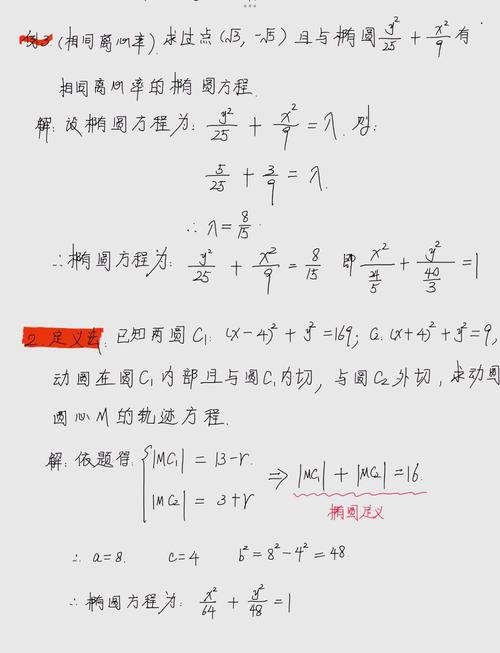 例3.(相同离心率).求过点(√3,-√5)且与椭圆y²/25+x²/9有
相同离心率的椭圆方程.
解:设椭圆方程为:y²/25+x²/9=λ.则:
5/25+3/9=λ.
∴λ=8/15.
∴椭圆方程为:y²/25+x²/9=8/15 即 x²/(24/5)+y²/(40/3)=1
2.定义法:已知两圆C₁:(x-4)²+y²=169;C₂(x+4)²+y²=9,
动圆在圆C₁内部且与圆C₁内切,与圆C₂外切,求动圆
圆心M的轨迹方程.
解:依题得:{|MC₁|=13-r.
|MC₂|=3+r
⇒|MC₁|+|MC₂|=16.
椭圆定义
∴a=8. c=4 b²=8²-4²=48
∴椭圆方程为:x²/64+y²/48=1